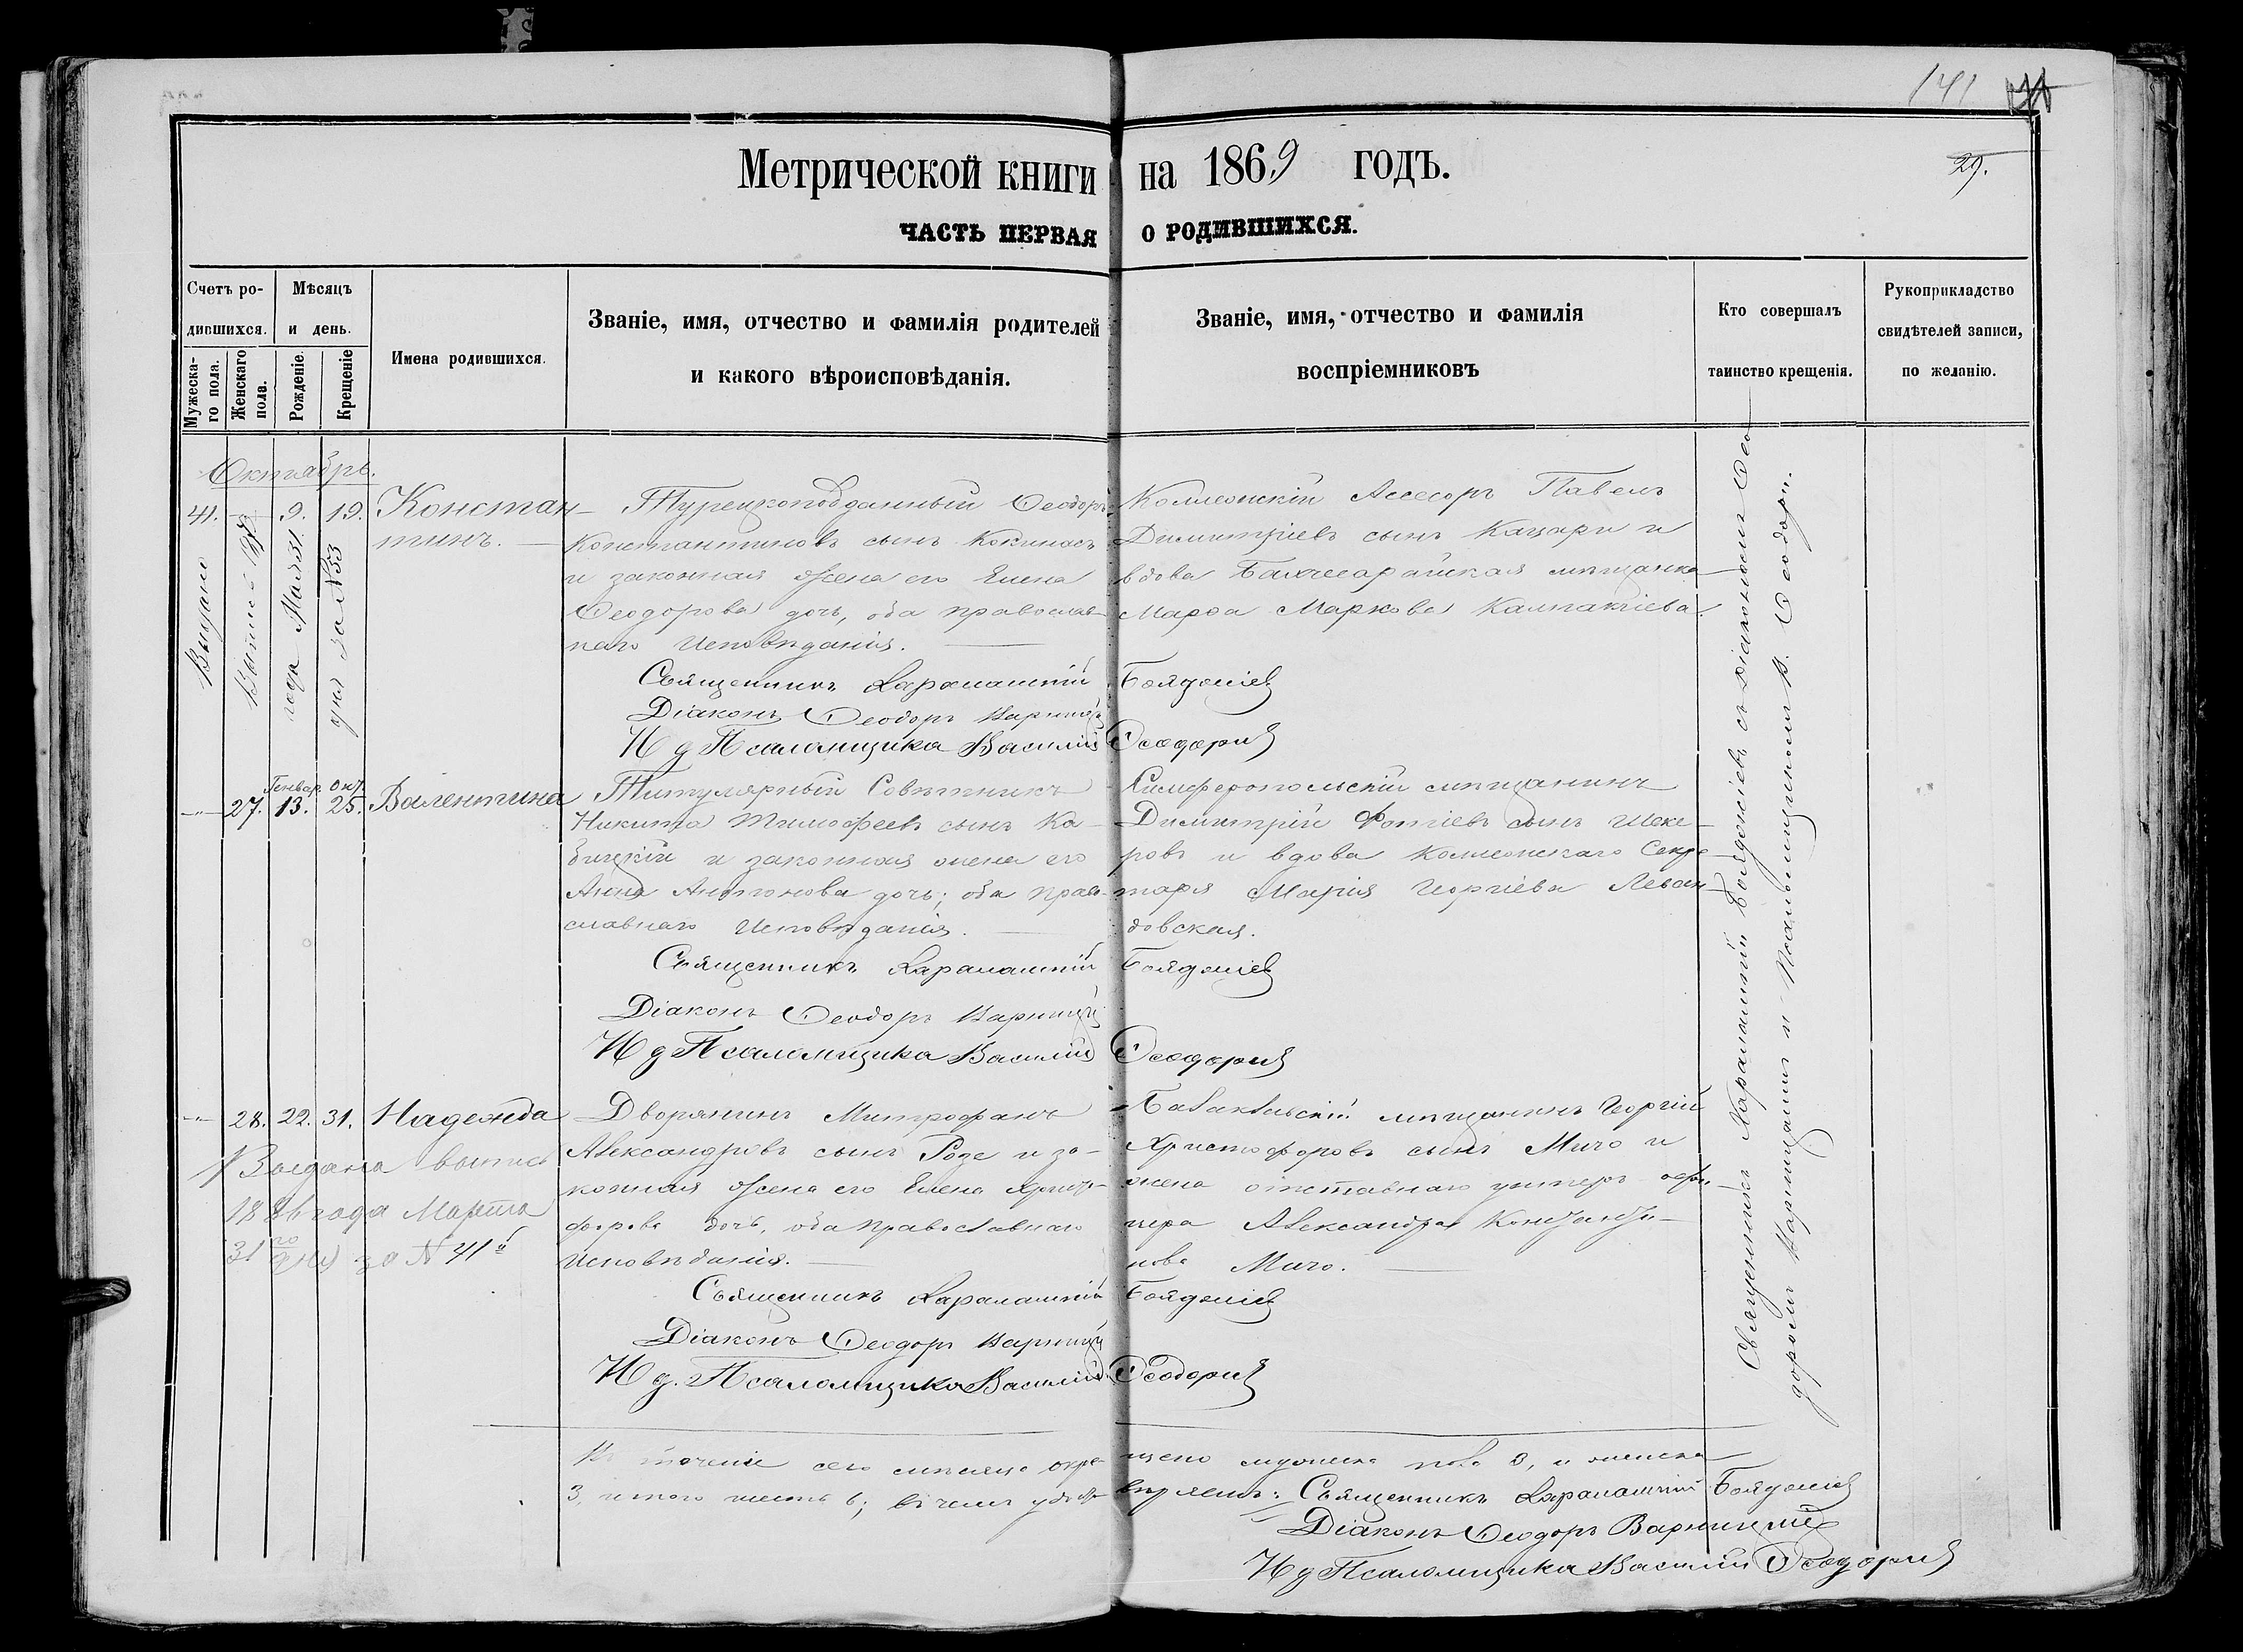 141
29.
Метрической книги на 1869 годъ.
ЧАСТЬ ПЕРВАЯ О РОДИВШИХСЯ.
Счетъ ро-
дившихся.
Мужеска-
го пола.
Женскаго
пола.
Мѣсяцъ
и день.
Рожденіе.
Крещеніе
Имена родившихся.
Званіе, имя, отчество и фамилія родителей
и какого вѣроисповѣданія.
Званіе, имя, отчество и фамилія
воспріемниковъ
Кто совершалъ
таинство крещенія.
Рукоприкладство
свидѣтелей записи,
по желанію.
Октябрь.
41. 9. 19. Констан-
тинъ.
Турецкоподданный Ѳеодоръ
Константиновъ сынъ Кокинасъ
и законная жена его Елена
Ѳеодорова дочь, оба православ-
наго Исповѣданія.
Коллежскій Ассесоръ Павелъ
Димитріевъ сынъ Кацари и
вдова Бахчесарайская мѣщанка
Марѳа Маркова Калпакчіева.
Священникъ Харалампій Бояджіев
Діаконъ Ѳеодоръ Варницкій
И д Псаломщика Василій Ѳеодори
Генвар. Окт.
27. 13. 25. Валентина
Титулярный Совѣтникъ
Никита Тимофеевъ сынъ Ка-
бицкій и законная жена его
Анна Антонова дочь; оба право-
славнаго Исповѣданія.
Симферопольскій мѣщанинъ
Димитрій Фотіевъ сынъ Шеке-
ровъ и вдова Коллежскаго Секре-
таря Марія Георгіева Леван-
довская.
Священникъ Харалампій Бояджіев
Діаконъ Ѳеодоръ Варницкій
И д Псаломщика Василій Ѳеодори
28. 22. 31. Надежда
Дворянинъ Митрофанъ
Александровъ сынъ Розе и за-
конная жена его Елена Христо-
форова дочь, оба православнаго
Исповѣданія.
Балаклавскій мѣщанинъ Георгій
Христофоровъ сынъ Мичо и
жена отставнаго унтеръ-офи-
цера Александра Константи-
нова Мичо.
Выдана выпись
1886 года Марта
31 го дня за N 41 й
Священникъ Харалампій Бояджіев
Діаконъ Ѳеодоръ Варницкій
И д. Псаломщика Василій Ѳеодори
Въ теченіе сего мѣсяца окре-щено мужеска пола 3, и женска
3, итого шесть 6; въ чемъ удосто-вѣряемъ: Священникъ Харалампій Бояджіев
Діаконъ Ѳеодоръ Варницкій
И д Псаломщика Василій Ѳеодори
Священникъ Харалампій Бояджіевъ съ діакономъ Ѳео-
доромъ Варницкимъ и Псаломщикомъ В. Ѳеодори.